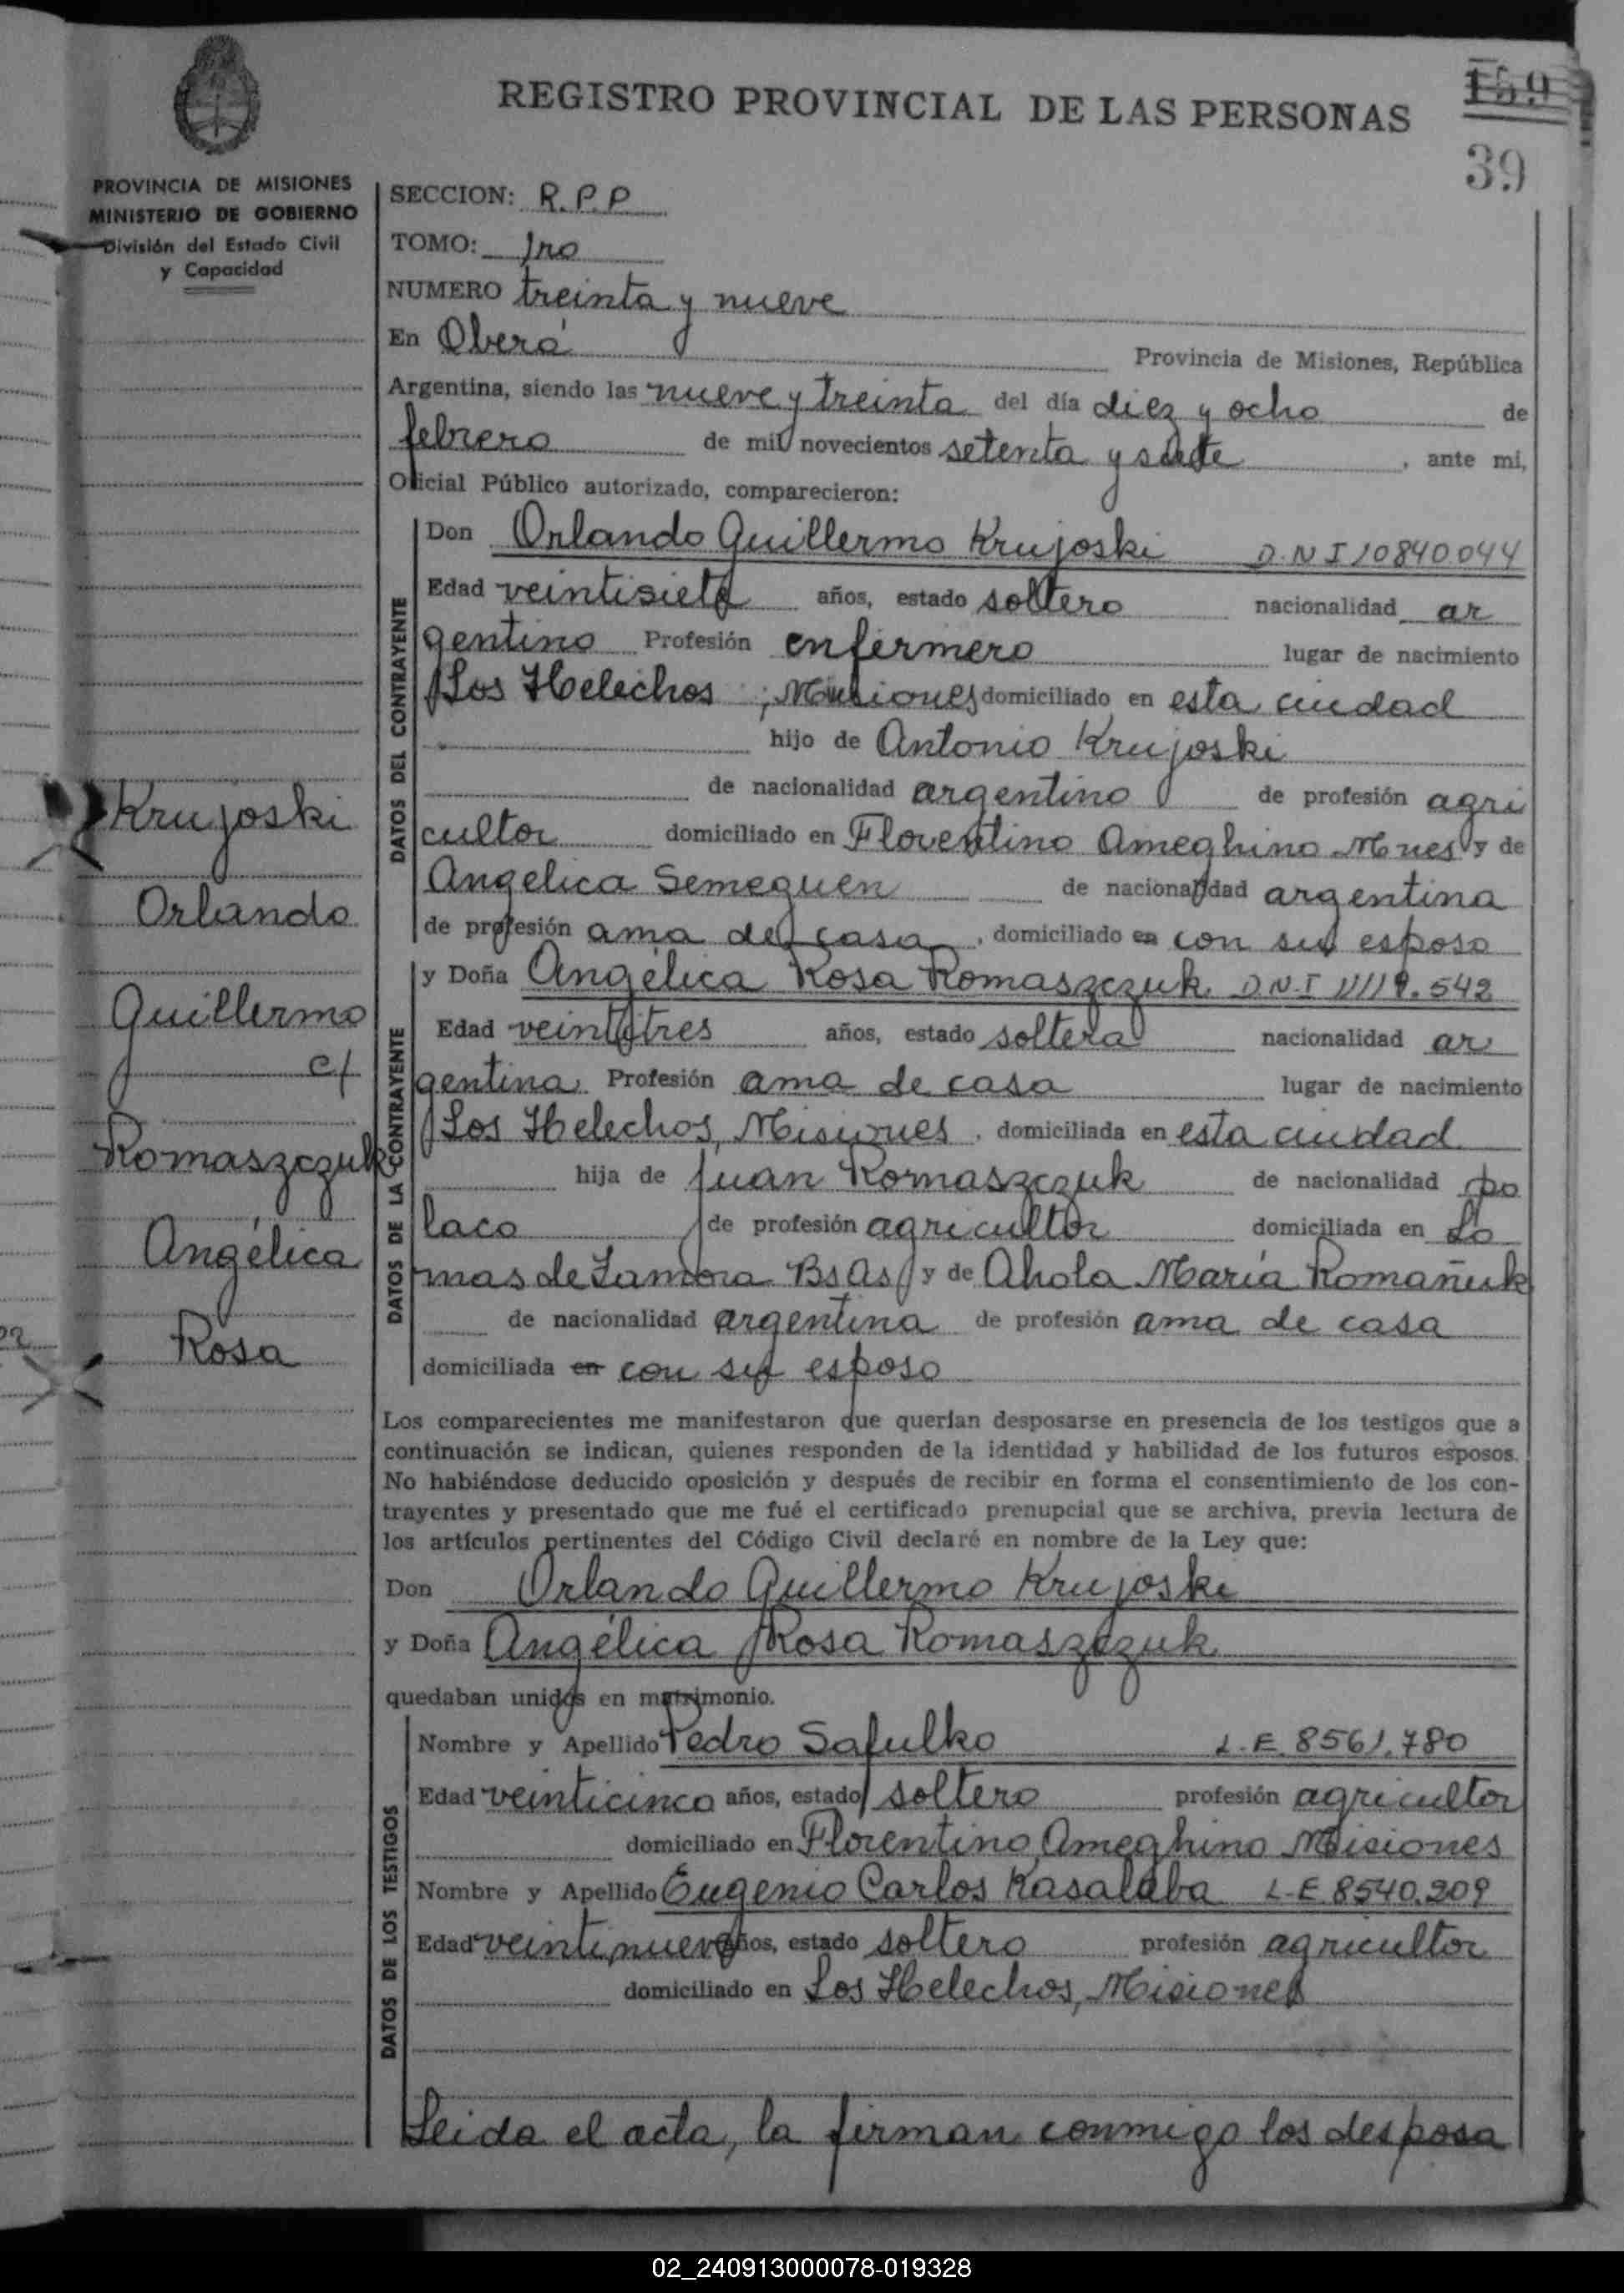 REGISTRO PROVINCIAL DE LAS PERSONAS
159
39
PROVINCIA DE MISIONES
MINISTERIO DE GOBIERNO
División del Estado Civil
y Capacidad
SECCION: R.P.P
TOMO: 1ro
NUMERO treinta y nueve
En Oberá Provincia de Misiones, República
Argentina, siendo las nueve y treinta del día diez y ocho de
febrero de mil novecientos setenta y siete, ante mi,
Oficial Público autorizado, comparecieron:
DATOS DEL CONTRAYENTE
Don Orlando Guillermo Krujoski D.N.I 10840.044
Edad veintisiete años, estado soltero nacionalidad ar
gentino Profesión enfermero lugar de nacimiento
Los Helechos, Misiones domiciliado en esta ciudad
hijo de Antonio Krujoski
de nacionalidad argentino de profesión agri
cultor domiciliado en Florentino Ameghino Mnes y de
Angelica Semeguen de nacionalidad argentina
de profesión ama de casa, domiciliado en con su esposo
DATOS DE LA CONTRAYENTE
y Doña Angélica Rosa Romaszczuk D.N.I 11119.542
Edad veintitres años, estado soltera nacionalidad ar
gentina Profesión ama de casa lugar de nacimiento
Los Helechos, Misiones, domiciliada en esta ciudad
hija de Juan Romaszczuk de nacionalidad po
laco de profesión agricultor domiciliada en Lo
mas de Zamora Bs As y de Ahola María Romañuk
de nacionalidad argentina de profesión ama de casa
domiciliada en con su esposo
Krujoski
Orlando
Guillermo
c/
Romaszczuk
Angélica
Rosa
Los comparecientes me manifestaron que querían desposarse en presencia de los testigos que a
continuación se indican, quienes responden de la identidad y habilidad de los futuros esposos.
No habiéndose deducido oposición y después de recibir en forma el consentimiento de los con-
trayentes y presentado que me fué el certificado prenupcial que se archiva, previa lectura de
los artículos pertinentes del Código Civil declaré en nombre de la Ley que:
Don Orlando Guillermo Krujoski
y Doña Angélica Rosa Romaszczuk
quedaban unidos en matrimonio.
DATOS DE LOS TESTIGOS
Nombre y Apellido Pedro Safulko L.E. 8561.780
Edad veinticinco años, estado soltero profesión agricultor
domiciliado en Florentino Ameghino Misiones
Nombre y Apellido Eugenio Carlos Kasalaba L.E 8540.209
Edad veintinueve años, estado soltero profesión agricultor
domiciliado en Los Helechos, Misiones
Leida el acta, la firman conmigo los desposa
02_240913000078-019328